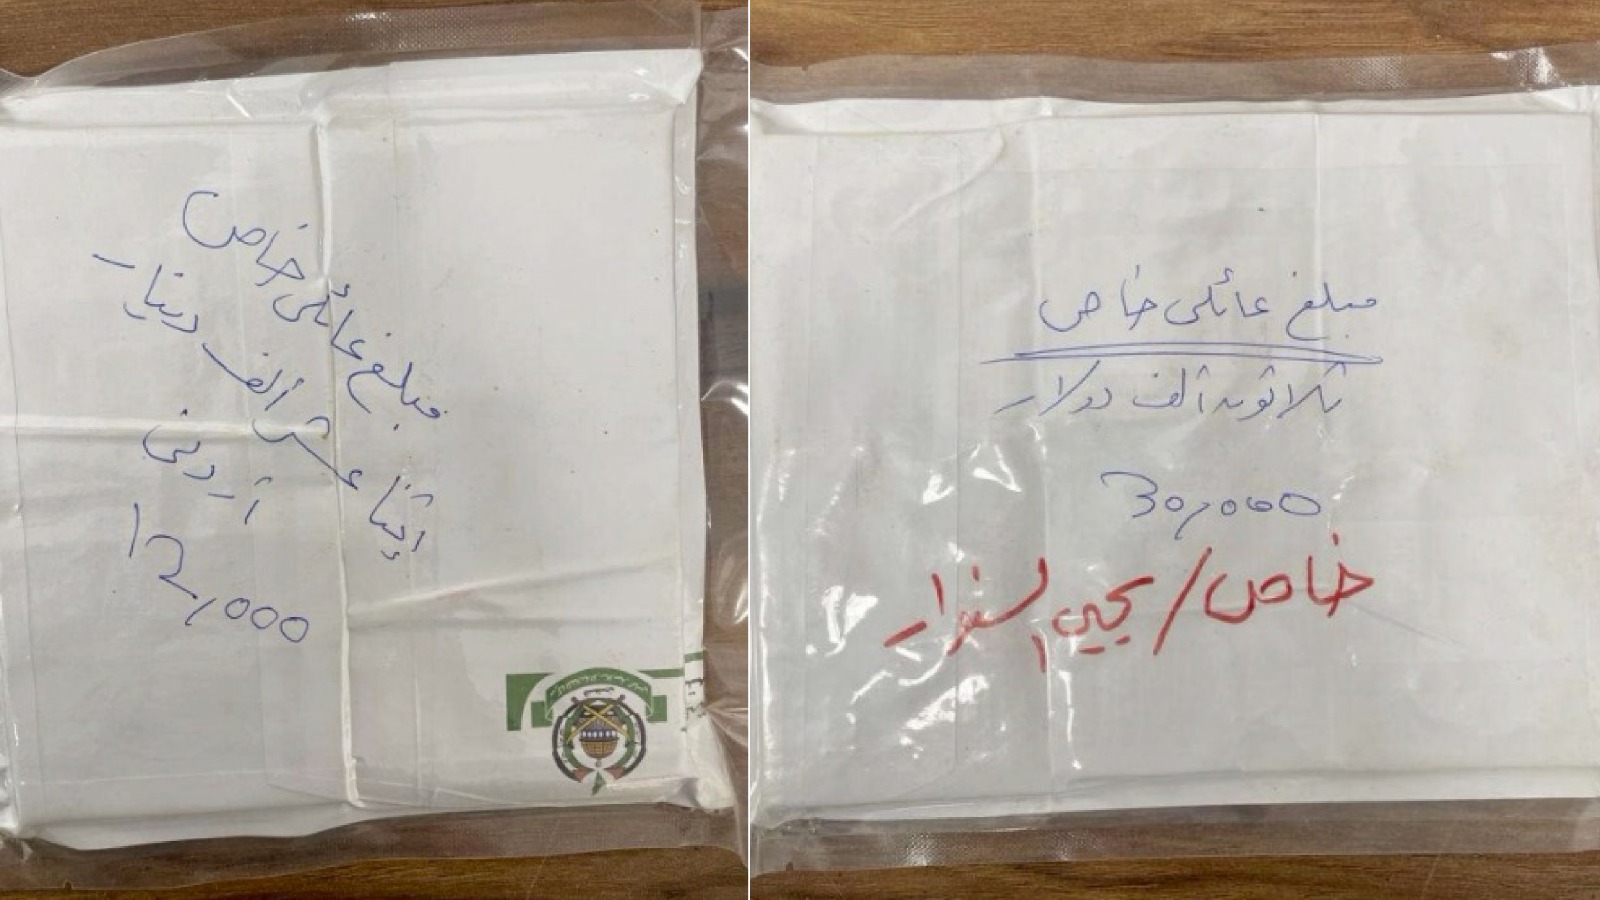 مبلغ عائلي خاص
إثنا عشر ألف دينار
أردني
12,000
مبلغ عائلي خاص
ثلاثون ألف دولار
30,000
خاص / يحيى السنوار